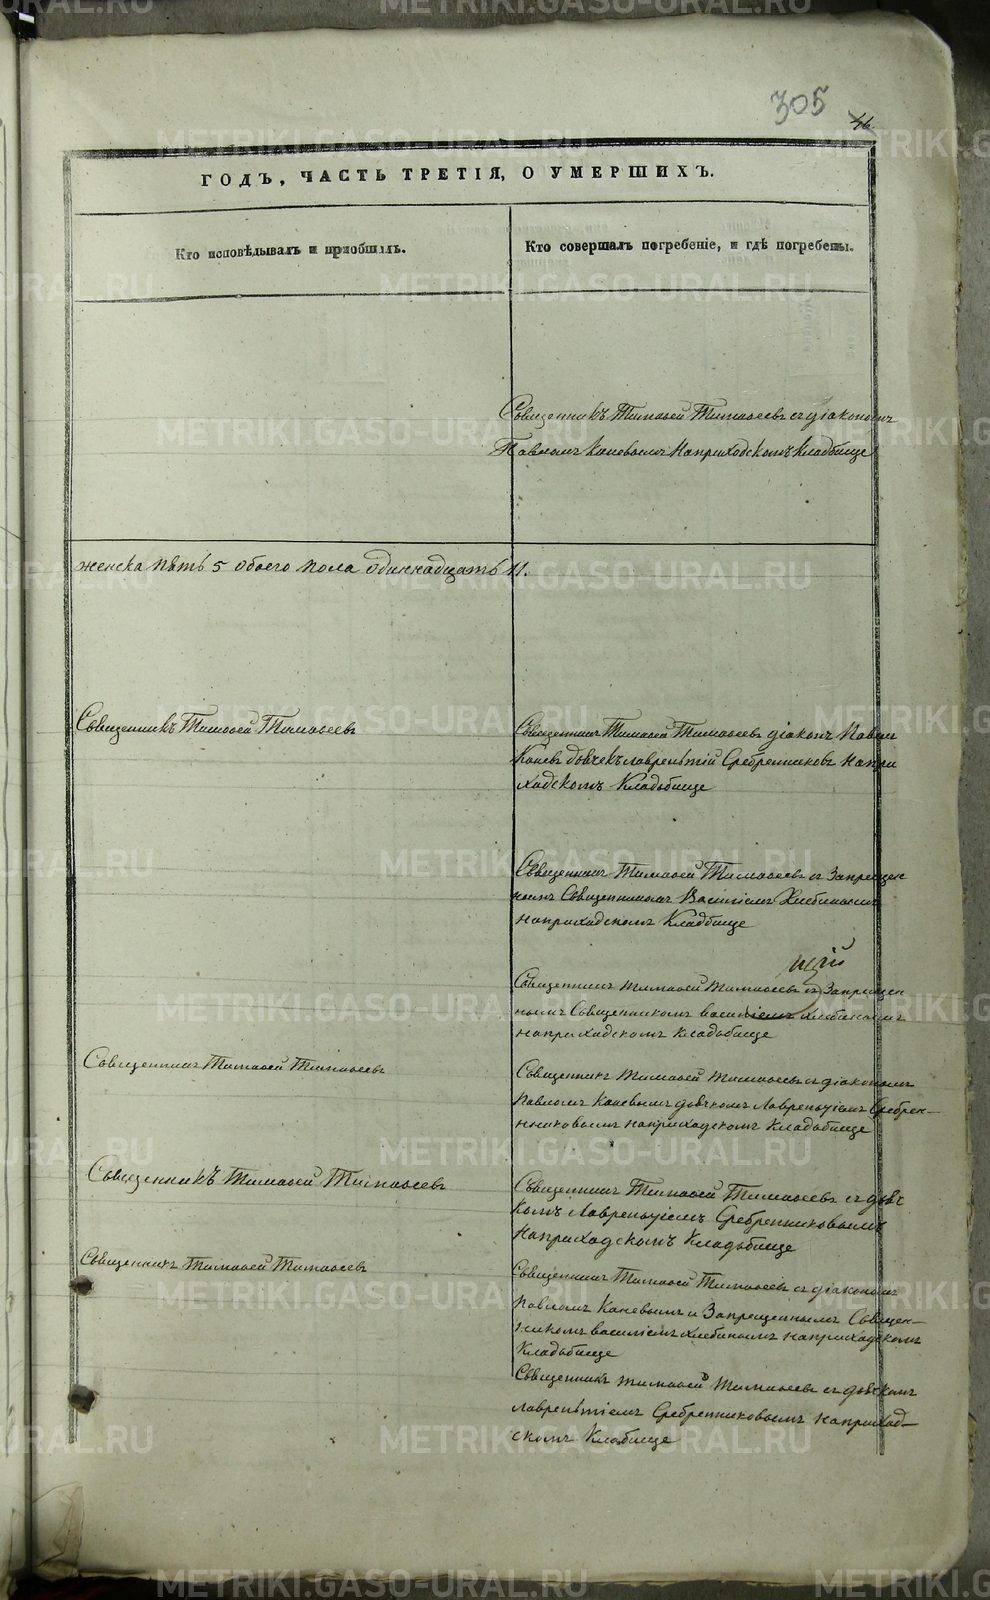 305
46
ГОДЪ, ЧАСТЬ ТРЕТІЯ, О УМЕРШИХЪ.
Кто исповѣдывалъ и пріобщалъ.
Кто совершалъ погребеніе, и гдѣ погребены.
Священникъ Тимофей Тимофеевъ съ діакономъ
Павломъ Каневымъ наприходскомъ кладбище
женска пять 5 обоего пола одиннадцать 11.
Священникъ Тимофей Тимофеевъ
Священникъ Тимофей Тимофеевъ діаконъ Павелъ
Каневъ дьячекъ лаврентій Сребренниковъ напри
ходскомъ Кладьбище
Священникъ Тимофей Тимофеевъ съ Запрещен
нымъ Священникомъ Васіліемъ Хлебинымъ
наприходскомъ Кладбище
щій
Священникъ тимофей тимофеевъ съ Запрещен
нымъ Священникомъ василіемъ хлебинымъ
наприходскомъ кладьбище
Священникъ Тимофей Тимофеевъ
Священникъ тимофей тимофеевъ съ діакономъ
Павломъ Каневымъ дьячкомъ Лаврентіемъ Сребрен-
никовымъ наприходскомъ Кладьбище
Священникъ Тимофей Тимофеевъ
Священникъ Тимофей Тимофеевъ съ дьяч
комъ Лаврентіемъ Сребренниковымъ
наприходскомъ Кладьбище
Священникъ Тимофей Тимофеевъ
Священникъ Тимофей Тимофеевъ съ діакономъ
Павломъ Каневымъ и Запрещеннымъ Священ-
никомъ василіемъ хлебинымъ наприходскомъ
Кладьбище
Священникъ тимофей Тимофеевъ съ дьячкомъ
лаврентіемъ Сребренниковымъ наприход-
скомъ Клабище
METRIKI.GASO-URAL.RU